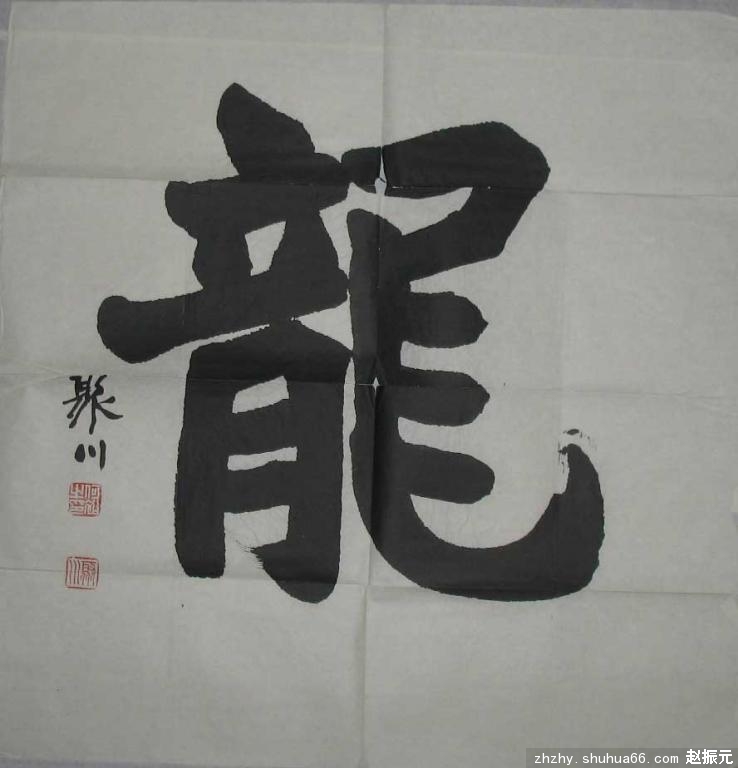 龍
聚川
zhzhy.shuhua66.com 赵振元